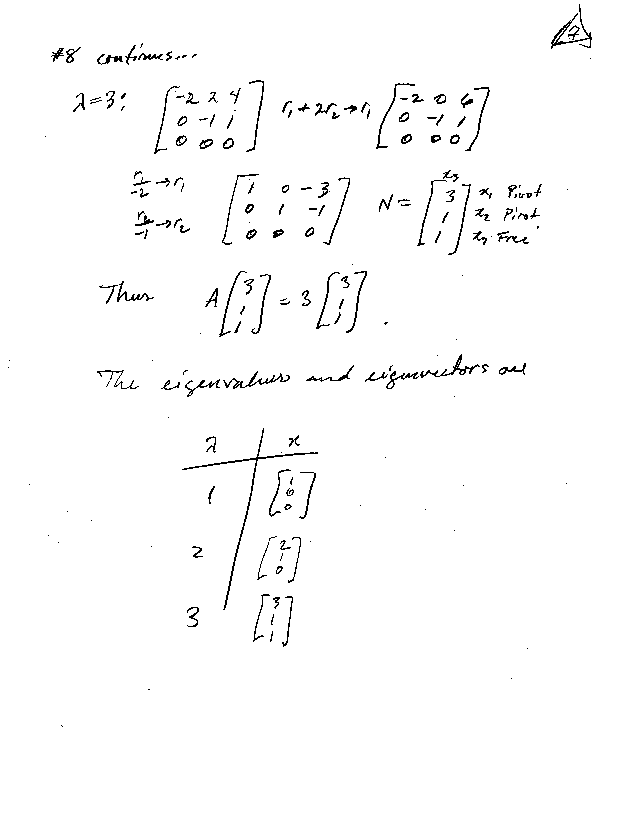 7
#8 continues...
λ=3: [-2 2 4; 0 -1 1; 0 0 0] r₁ + 2r₂ → r₁ [-2 0 6; 0 -1 1; 0 0 0]
r₁/-2 → r₁
r₂/-1 → r₂
[1 0 -3; 0 1 -1; 0 0 0] N = x₃ [3; 1; 1] x₁ Pivot
x₂ Pivot
x₃ Free
Thus A [3; 1; 1] = 3 [3; 1; 1].
The eigenvalues and eigenvectors are
λ x
1 [1; 0; 0]
2 [2; 1; 0]
3 [3; 1; 1]